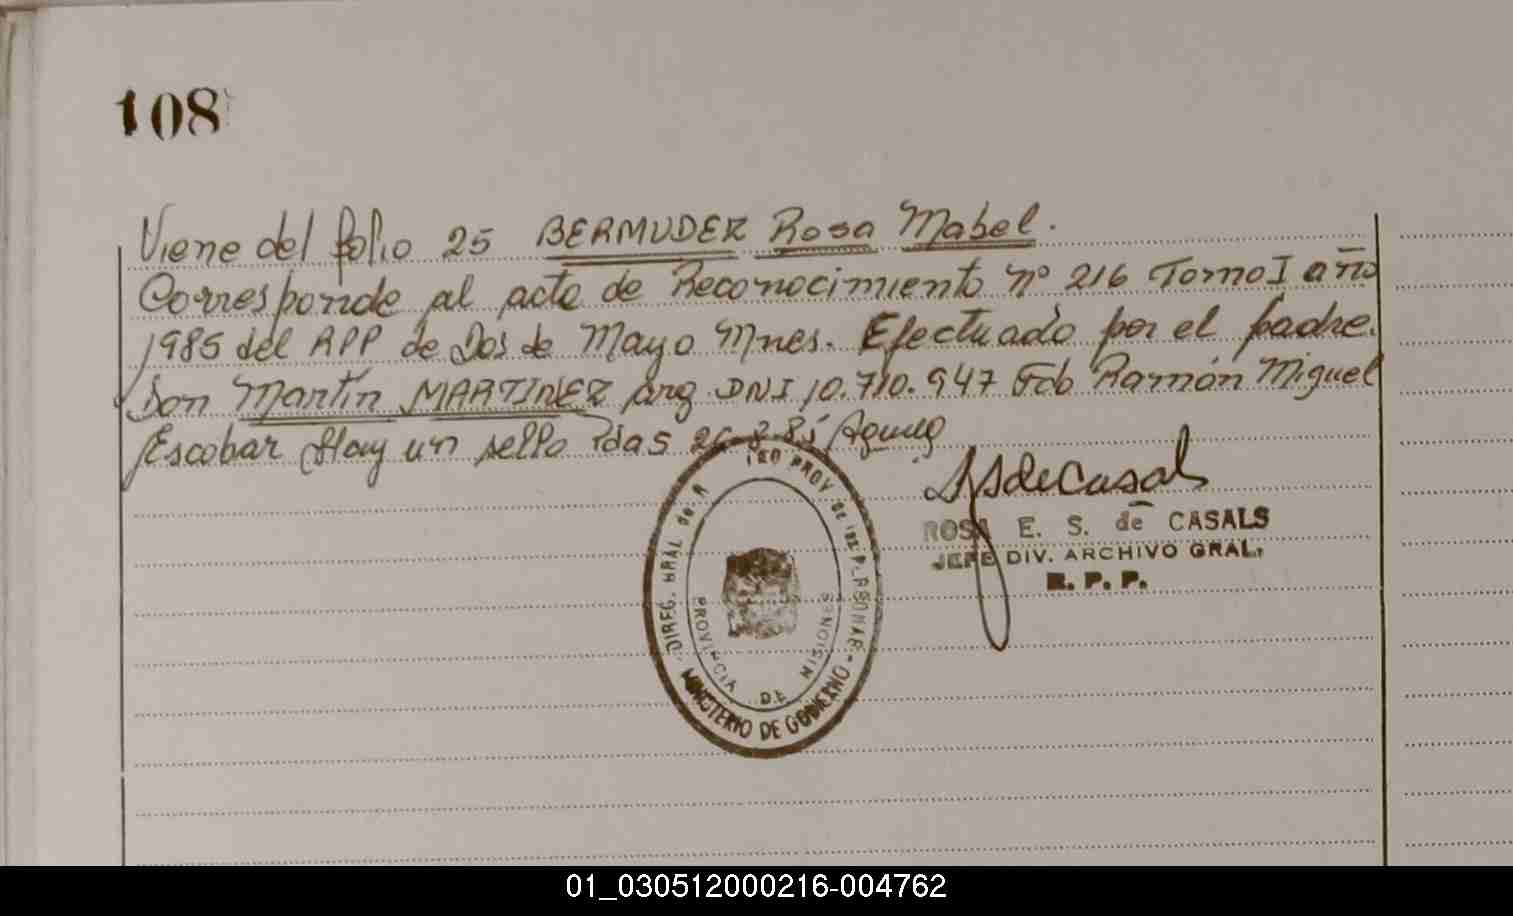 108
Viene del folio 25 BERMUDEZ Rosa Mabel.
Corresponde al acta de Reconocimiento Nº 216 Tomo I año
1985 del RPP de Dos de Mayo Mnes. Efectuado por el padre.
Don Martín MARTINEZ arg DNI 10.710.947 Fdo Ramón Miguel
Escobar Hay un sello Pdas 26-8-85
ROSA E. S. de CASALS
JEFE DIV. ARCHIVO GRAL.
R. P. P.
DIREC. GRAL de PROV. de PERSONAS
PROVINCIA DE MISIONES
MINISTERIO DE GOBIERNO
01_030512000216-004762